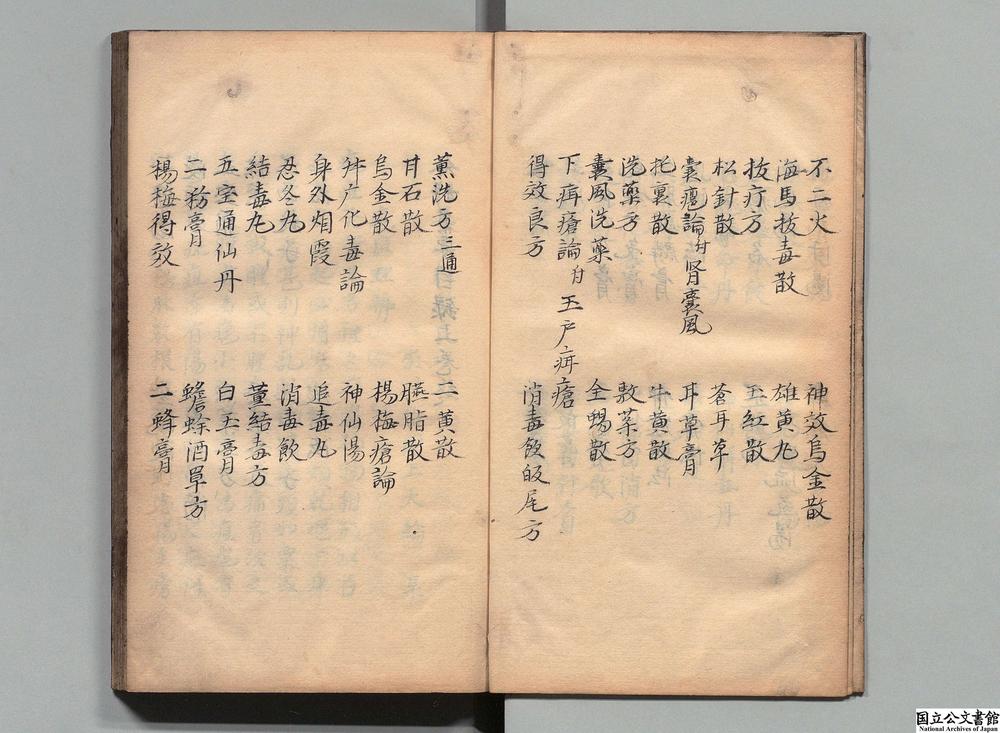 不二火 神效烏金散
海馬拔毒散 雄黄丸
拔疔方 玉紅散
松針散 蒼耳草
囊癰論附腎囊風 耳草膏
托裏散 牛黄散
洗藥方 敷藥方
囊風洗藥 全蝎散
下疳瘡論附玉户疳瘡
得效良方 消毒飲敀尾方
薰洗方三通 二黄散
甘石散 臙脂散
烏金散 楊梅瘡論
升疒化毒論 神仙湯
身外烟霞 追毒丸
忍冬丸 消毒飲
結毒丸 薰結毒方
五宝通仙丹 白玉膏
二粉膏 蟾蜍酒單方
楊梅得效 二蜂膏
国立公文書館
National Archives of Japan